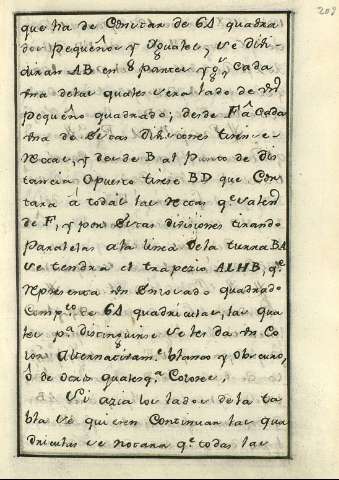 208
que ha de Constar de 64 quadra
dos pequeños y Yguales, se divi-
diran AB en 8 partes yg.s, Cada
Vna delas quales sera lado de Vn
pequeño quadrado; desde F â Cada
Vna de Estas Divisiones tirese
Rectas, y desde B al punto de dis
tancia Opuesto tirese BD que Cor-
tara â todas las Rectas q.e salen
de F, y por Estas divisiones tirando
Paralelas ala linea dela tierra BA
se tendra el trapezio ALHB, q.e
Representa Vn Enlosado quadrado
Comp.to de 64 quadriculas, las qua
les p.a distinguirse se les da Vn Co
lor Alternativam.e blanco y Obscuro,
ô de Otros qualesq.a Colores.
Si azia los lados dela ta
bla se quieren Continuar las qua
driculas se notara q.e todas las